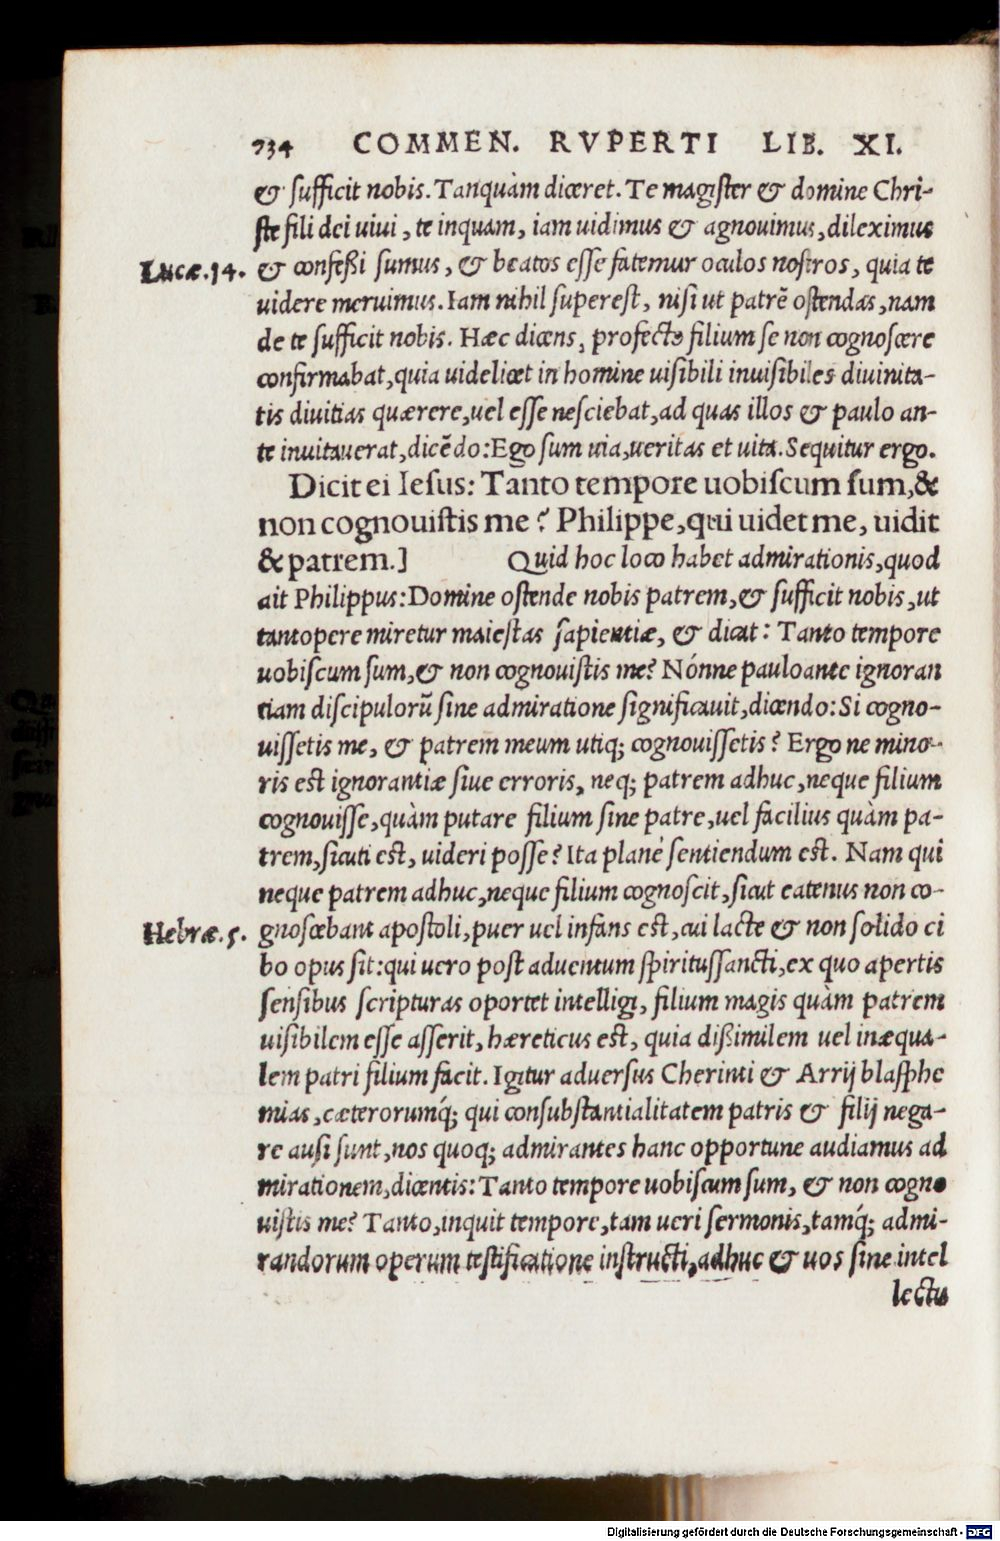 734 COMMEN. RVPERTI LIB. XI.
& sufficit nobis. Tanquàm diceret. Te magister & domine Chri-
ste fili dei uiui, te inquam, iam uidimus & agnouimus, dileximus
Lucæ. 14. & confeßi sumus, & beatos esse fatemur oculos nostros, quia te
uidere meruimus. Iam nihil superest, nisi ut patrē ostendas, nam
de te sufficit nobis. Hæc dicens, profecto filium se non cognoscere
confirmabat, quia uidelicet in homine uisibili inuisibiles diuinita-
tis diuitias quærere, uel esse nesciebat, ad quas illos & paulo an-
te inuitauerat, dicēdo: Ego sum uia, ueritas et uita. Sequitur ergo.
Dicit ei Iesus: Tanto tempore uobiscum sum, &
non cognouistis me? Philippe, qui uidet me, uidit
& patrem.] Quid hoc loco habet admirationis, quod
ait Philippus: Domine ostende nobis patrem, & sufficit nobis, ut
tantopere miretur maiestas sapientiæ, & dicat: Tanto tempore
uobiscum sum, & non cognouistis me? Nónne pauloante ignoran
tiam discipulorū sine admiratione significauit, dicendo: Si cogno-
uissetis me, & patrem meum utiq; cognouissetis? Ergo ne mino-
ris est ignorantiæ siue erroris, neq; patrem adhuc, neque filium
cognouisse, quàm putare filium sine patre, uel facilius quàm pa-
trem, sicuti est, uideri posse? Ita planè sentiendum est. Nam qui
neque patrem adhuc, neque filium cognoscit, sicut eatenus non co-
Hebræ. 5. gnoscebant apostoli, puer uel infans est, cui lacte & non solido ci
bo opus sit: qui uero post aduentum spiritussancti, ex quo apertis
sensibus scripturas oportet intelligi, filium magis quàm patrem
uisibilem esse asserit, hæreticus est, quia dißimilem uel inæqua-
lem patri filium facit. Igitur aduersus Cherinti & Arrij blasphe
mias, cæterorumq́; qui consubstantialitatem patris & filij nega-
re ausi sunt, nos quoq; admirantes hanc opportune audiamus ad
mirationem, dicentis: Tanto tempore uobiscum sum, & non cogno
uistis me? Tanto, inquit tempore, tam ueri sermonis, tamq́; admi-
randorum operum testificatione instructi, adhuc & uos sine intel
lectu
Digitalisierung gefördert durch die Deutsche Forschungsgemeinschaft - DFG